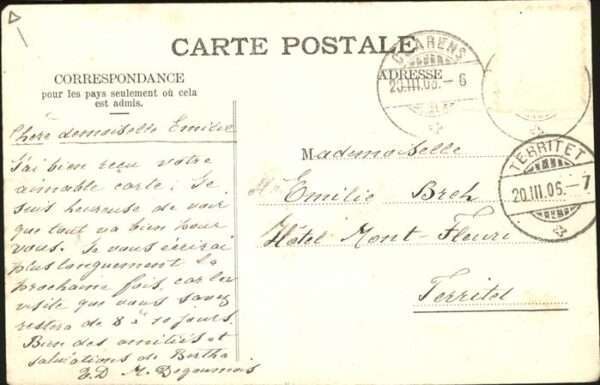 CARTE POSTALE
CORRESPONDANCE
pour les pays seulement où cela
est admis.
ADRESSE
CLARENS
20.III.06.-6
TERRITET
20.III.06.-7
Chère demoiselle Emilie
J'ai bien reçu votre
aimable carte; Je
suis heureuse de voir
que tout va bien pour
vous. Je vous écrirai
plus longuement la
prochaine fois, car les
visite que vous savez
restera de 8 à 10 jours.
Bien des amitiés et
salutations de Bertha
M. Degoumois
Mademoiselle
Emilie Breh
Hôtel Mont-Fleuri
Territet